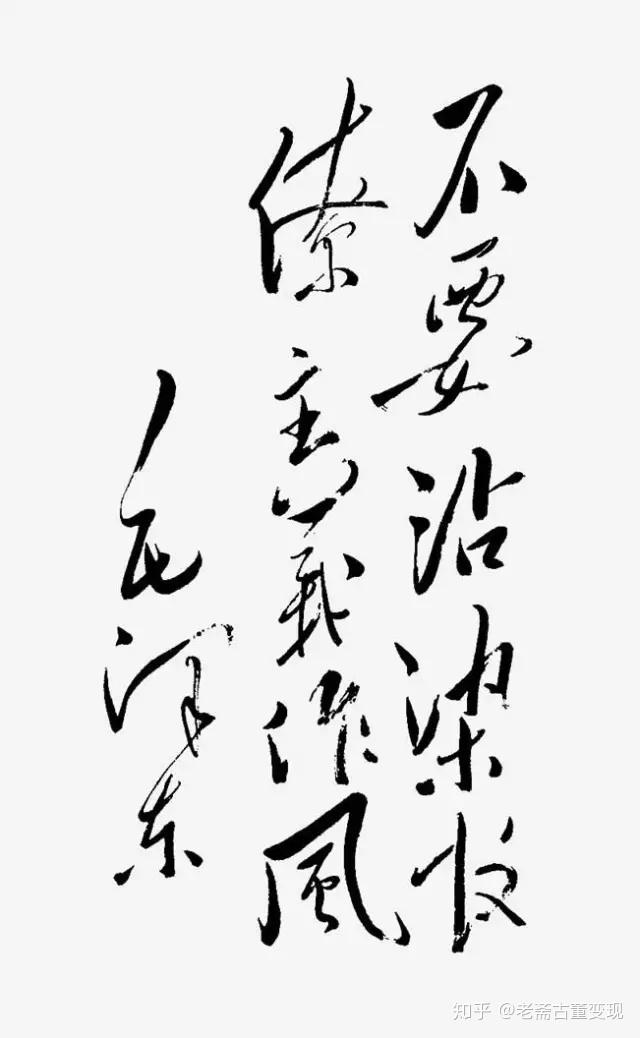 不要沾染
僚主義作風
毛泽东
知乎 @老斋古董变现